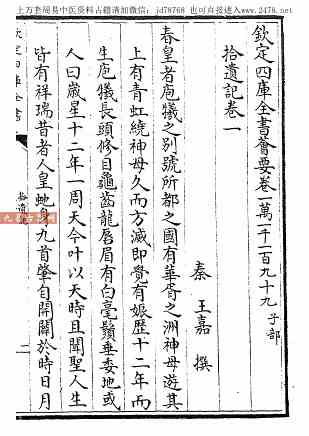 上万套周易中医资料古籍添加微信:jd78768 也可直接进入www.2478.net
欽定四庫全書薈要卷一萬一千一百九十九 子部
拾遺記卷一
秦 王嘉 撰
春皇者庖犧之别號所都之國有華胥之洲神母遊其
上有青虹繞神母久而方滅即覺有娠歴十二年而
生庖犧長頭修目龜齒龍唇眉有白毫鬚垂委地或
人曰歲星十二年一周天今叶以天時且聞聖人生
皆有祥瑞昔者人皇蛇身九首肇自開闢於時日月
拾遺記
一